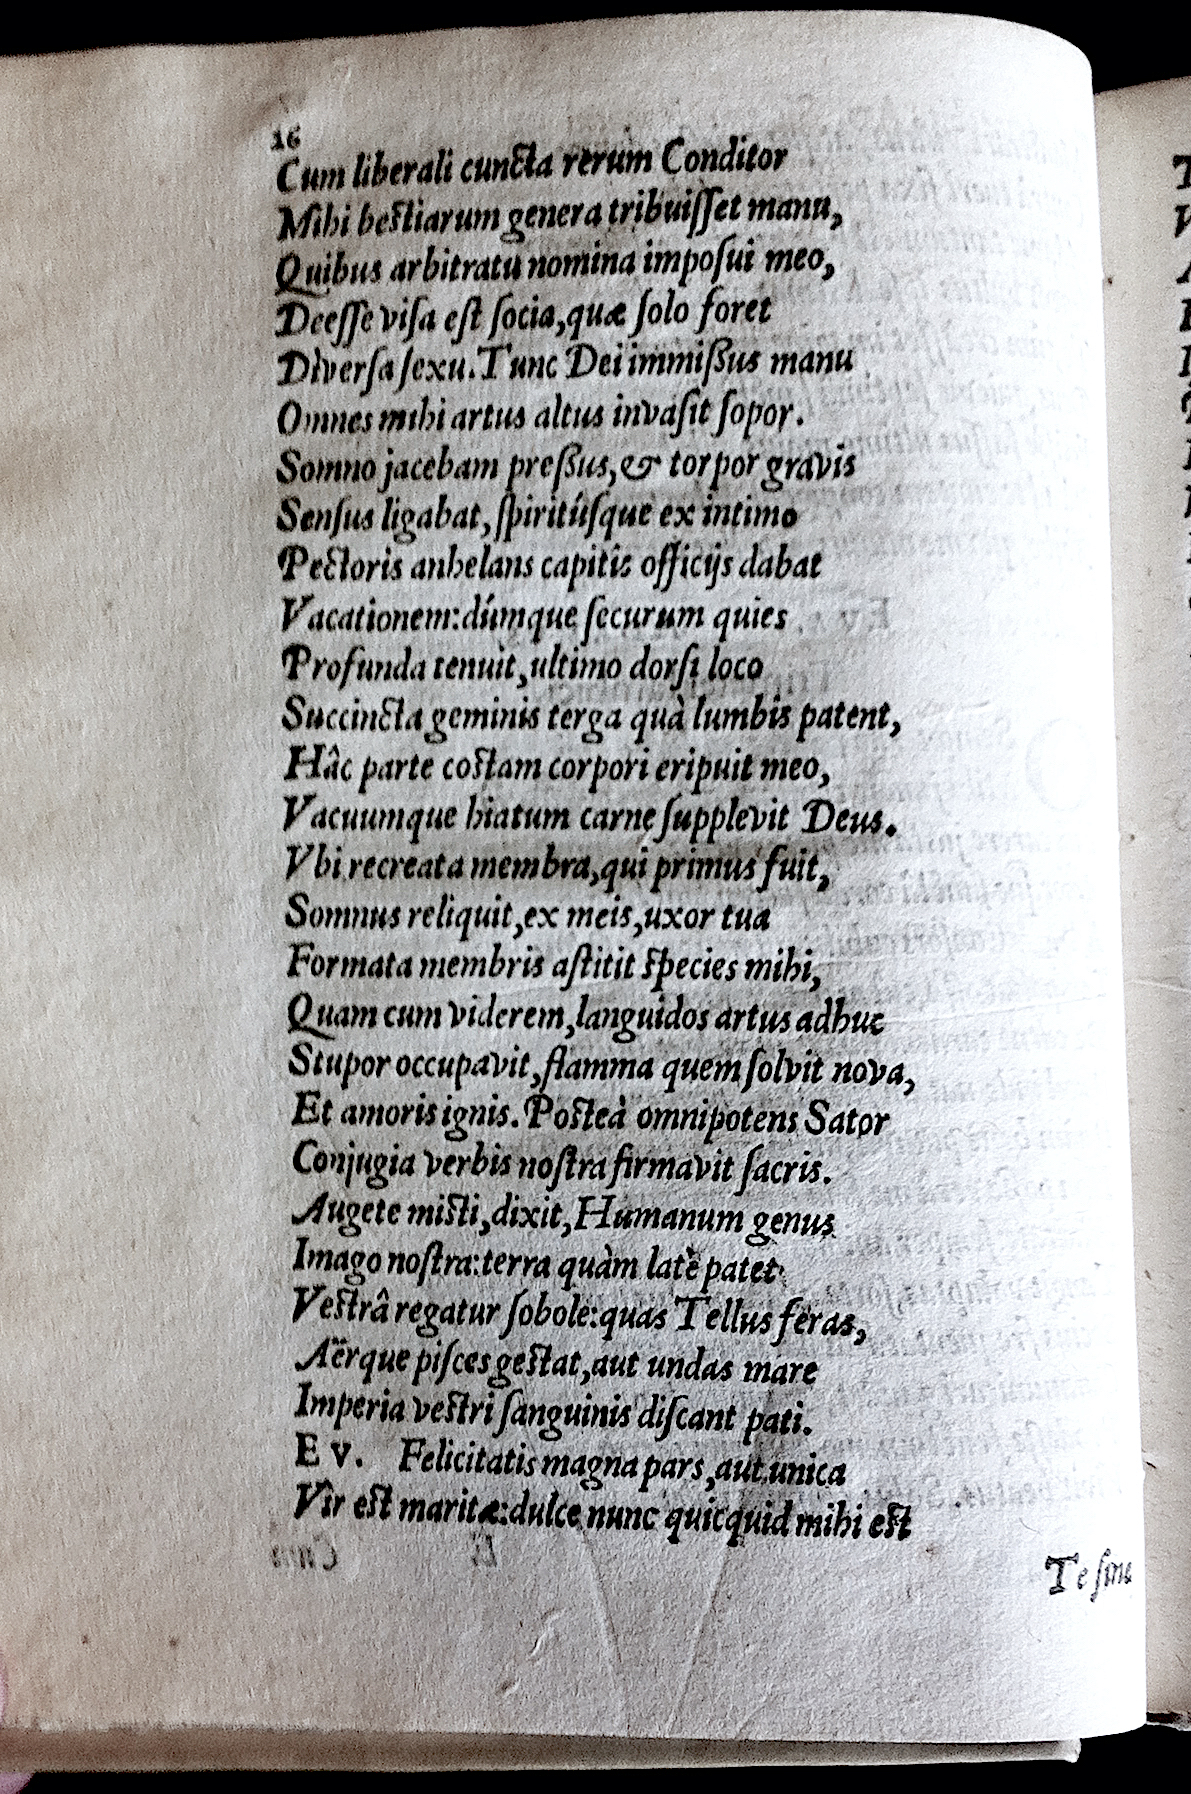 16
Cum liberali cuncta rerum Conditor
Mihi bestiarum genera tribuiſſet manu,
Quibus arbitratu nomina impoſui meo,
Deeſſe viſa eſt ſocia, quæ ſolo foret
Diverſa ſexu. Tunc Dei immiſsus manu
Omnes mihi artus altus invaſit ſopor.
Somno jacebam preſsus, & torpor gravis
Senſus ligabat, ſpiritúſque ex intimo
Pectoris anhelans capitis officijs dabat
Vacationem: dúmque ſecurum quies
Profunda tenuit, ultimo dorſi loco
Succincta geminis terga quà lumbis patent,
Hâc parte coſtam corpori eripuit meo,
Vacuumque hiatum carne ſupplevit Deus.
Vbi recreata membra, qui primus fuit,
Somnus reliquit, ex meis, uxor tua
Formata membris aſtitit ſpecies mihi,
Quam cum viderem, languidos artus adhuc
Stupor occupavit, flamma quem ſolvit nova,
Et amoris ignis. Poſteà omnipotens Sator
Conjugia verbis noſtra firmavit ſacris.
Augete miſti, dixit, Humanum genus
Imago noſtra: terra quàm latè patet
Veſtrâ regatur ſobole: quas Tellus feras,
Aërque piſces geſtat, aut undas mare
Imperia veſtri ſanguinis diſcant pati.
Ev. Felicitatis magna pars, aut unica
Vir eſt maritæ: dulce nunc quicquid mihi eſt
Te ſine